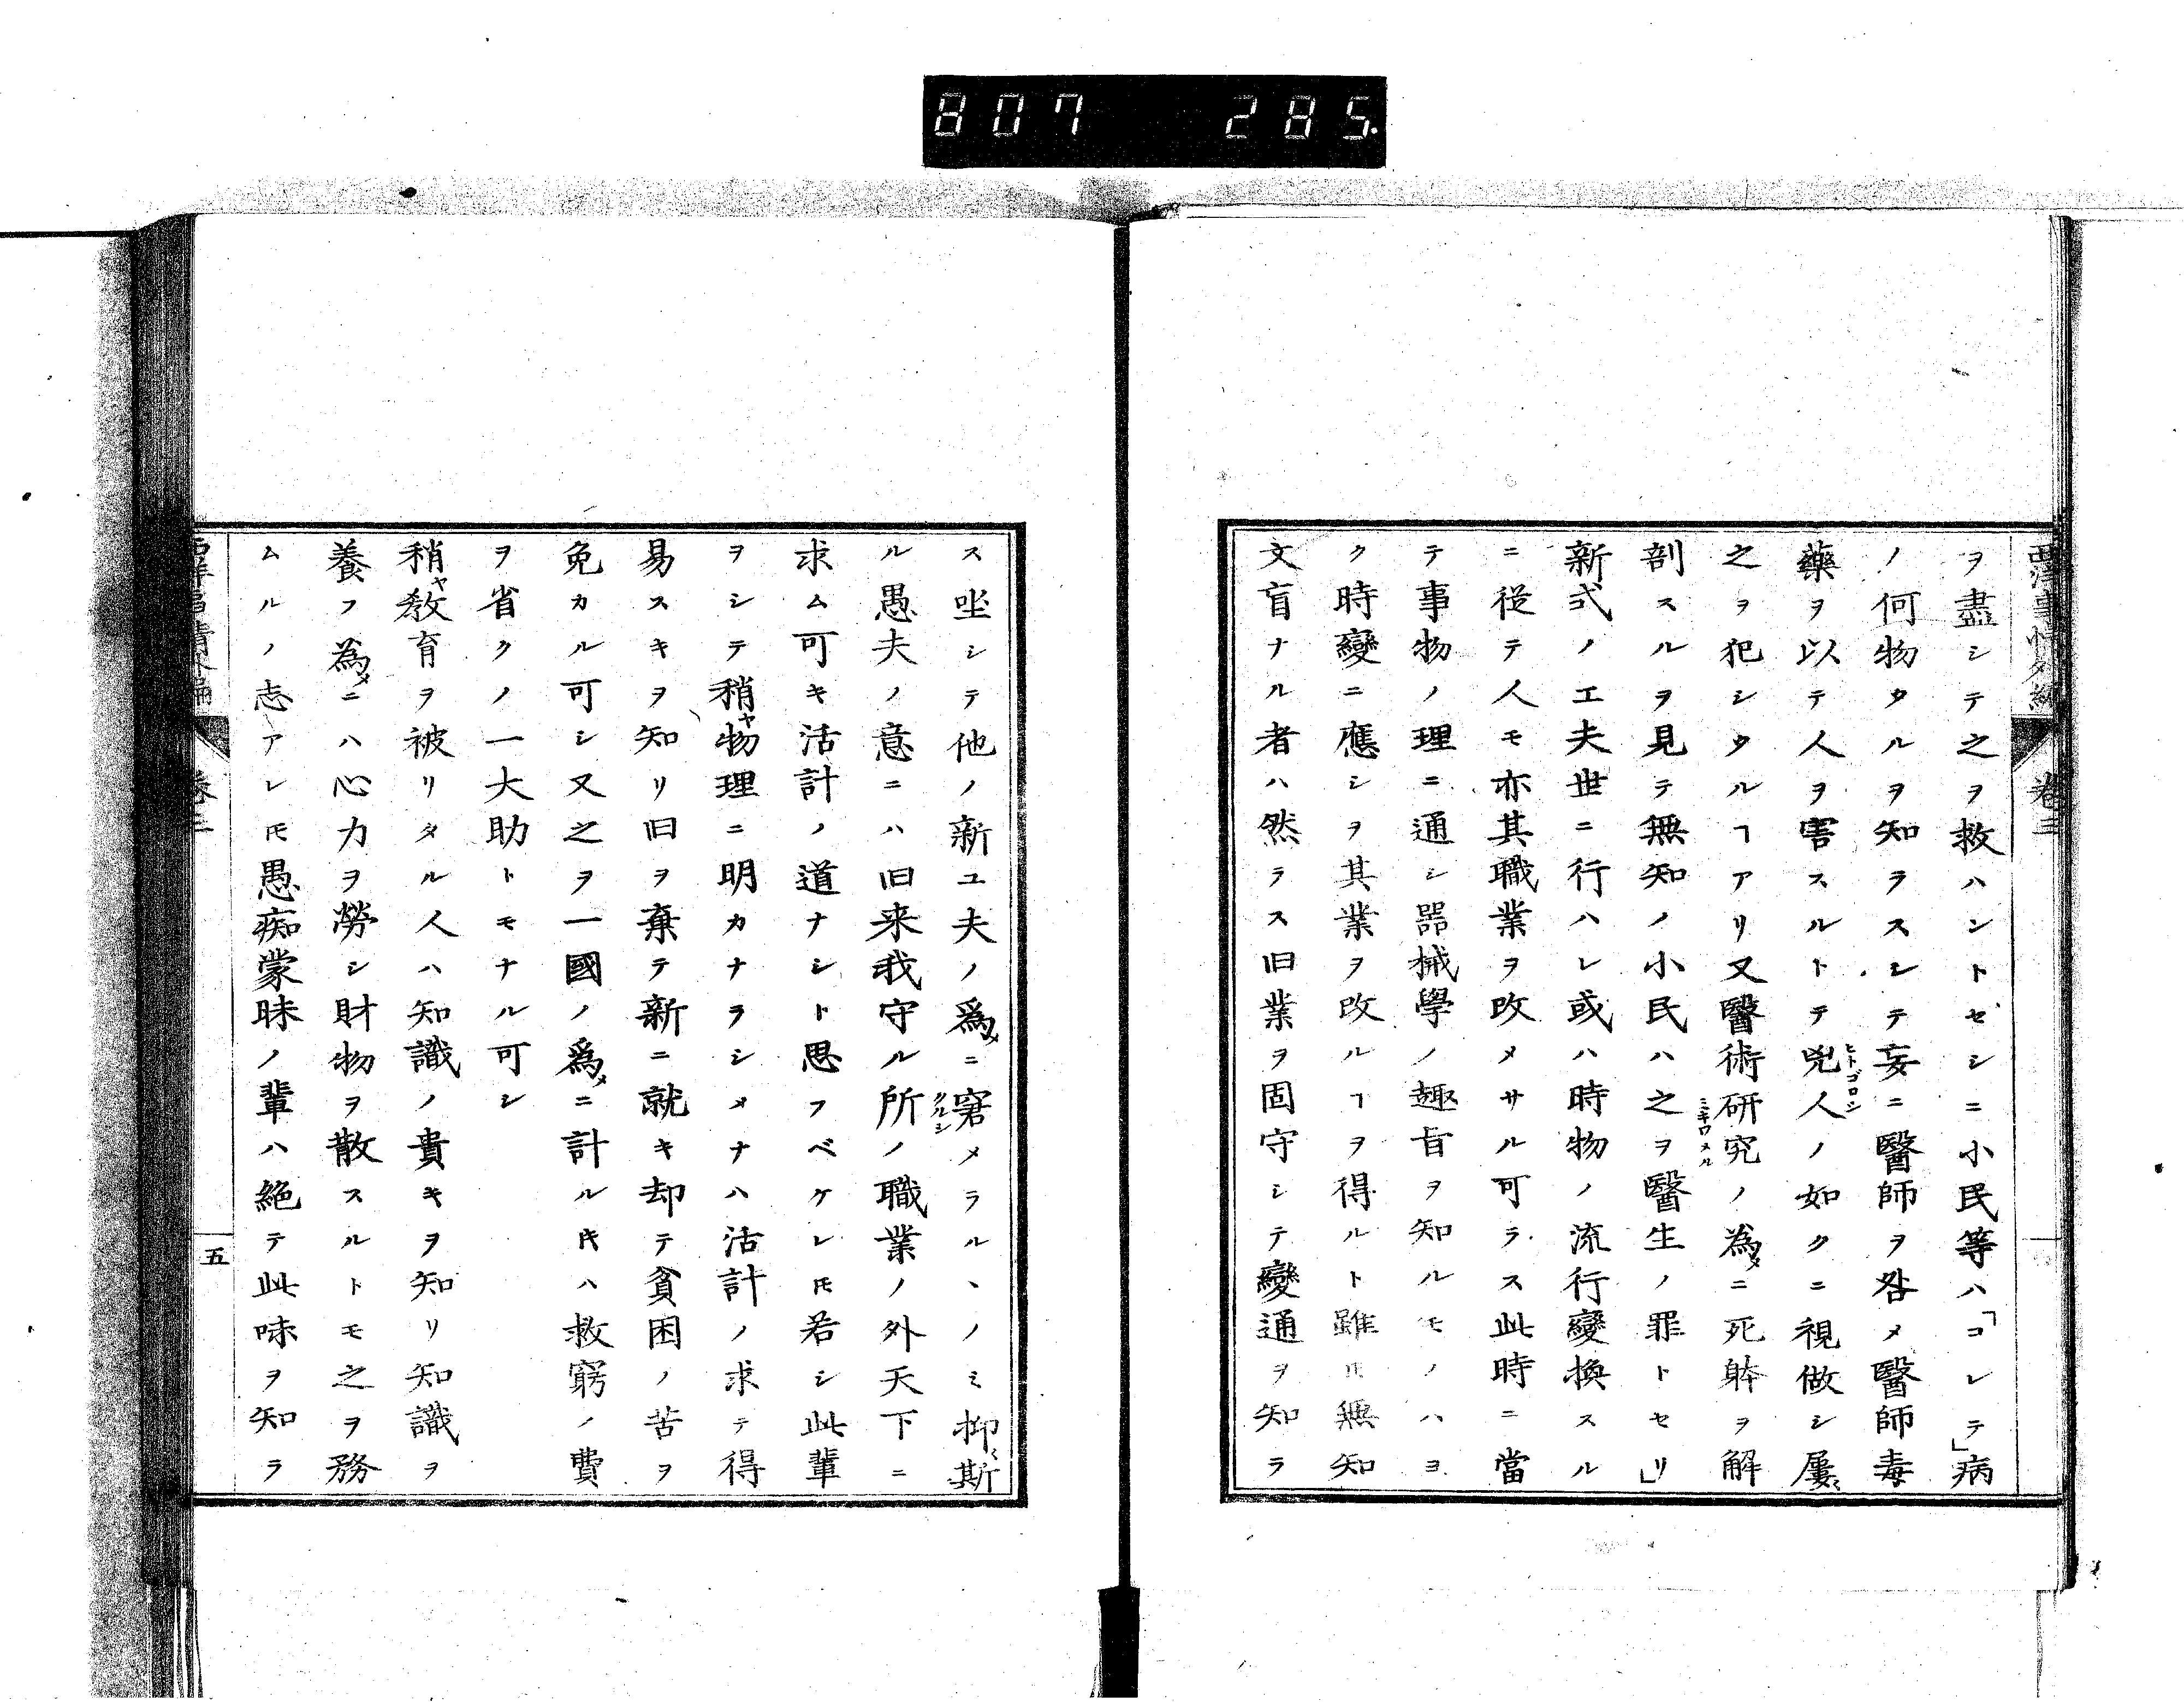 807 285.
西洋事情外編 卷三
ヲ盡シテ之ヲ救ハントセシニ小民等ハ「コレテ」病
ノ何物タルヲ知ラスシテ妄ニ醫師ヲ咎メ醫師毒
藥ヲ以テ人ヲ害スルトテ兇人ヒトゴロシノ如クニ視做シ屢〻
之ヲ犯シタルヿアリ又醫術研究ミキワメルノ為メニ死躰ヲ解
剖スルヲ見テ無知ノ小民ハ之ヲ醫生ノ罪トセリ」
新式ノ工夫世ニ行ハレ或ハ時物ノ流行變換スル
ニ從テ人モ亦其職業ヲ改メサル可ラス此時ニ當
テ事物ノ理ニ通シ器械學ノ趣旨ヲ知ルモノハヨ
ク時變ニ應シヲ其業ヲ改ルヿヲ得ルト雖𪜈無知
文盲ナル者ハ然ラス旧業ヲ固守シテ變通ヲ知ラ
ス坐シテ他ノ新工夫ノ爲メニ窘クルシメラルヽノミ抑〻斯
ル愚夫ノ意ニハ旧来我守ル所ノ職業ノ外天下ニ
求ム可キ活計ノ道ナシト思フベケレ𪜈若シ此輩
ヲシテ稍ヤ物理ニ明カナラシメナハ活計ノ求テ得
易スキヲ知リ旧ヲ棄テ新ニ就キ却テ貧困ノ苦ヲ
免カル可シ又之ヲ一國ノ爲メニ計ルキハ救窮ノ費
ヲ省クノ一大助トモナル可シ
稍ヤ教育ヲ被リタル人ハ知識ノ貴キヲ知リ知識ヲ
養フ為メニハ心力ヲ勞シ財物ヲ散スルトモ之ヲ務
ムルノ志アレ𪜈愚痴蒙昧ノ輩ハ絶テ此味ヲ知ラ
西洋事情外編 卷三 五